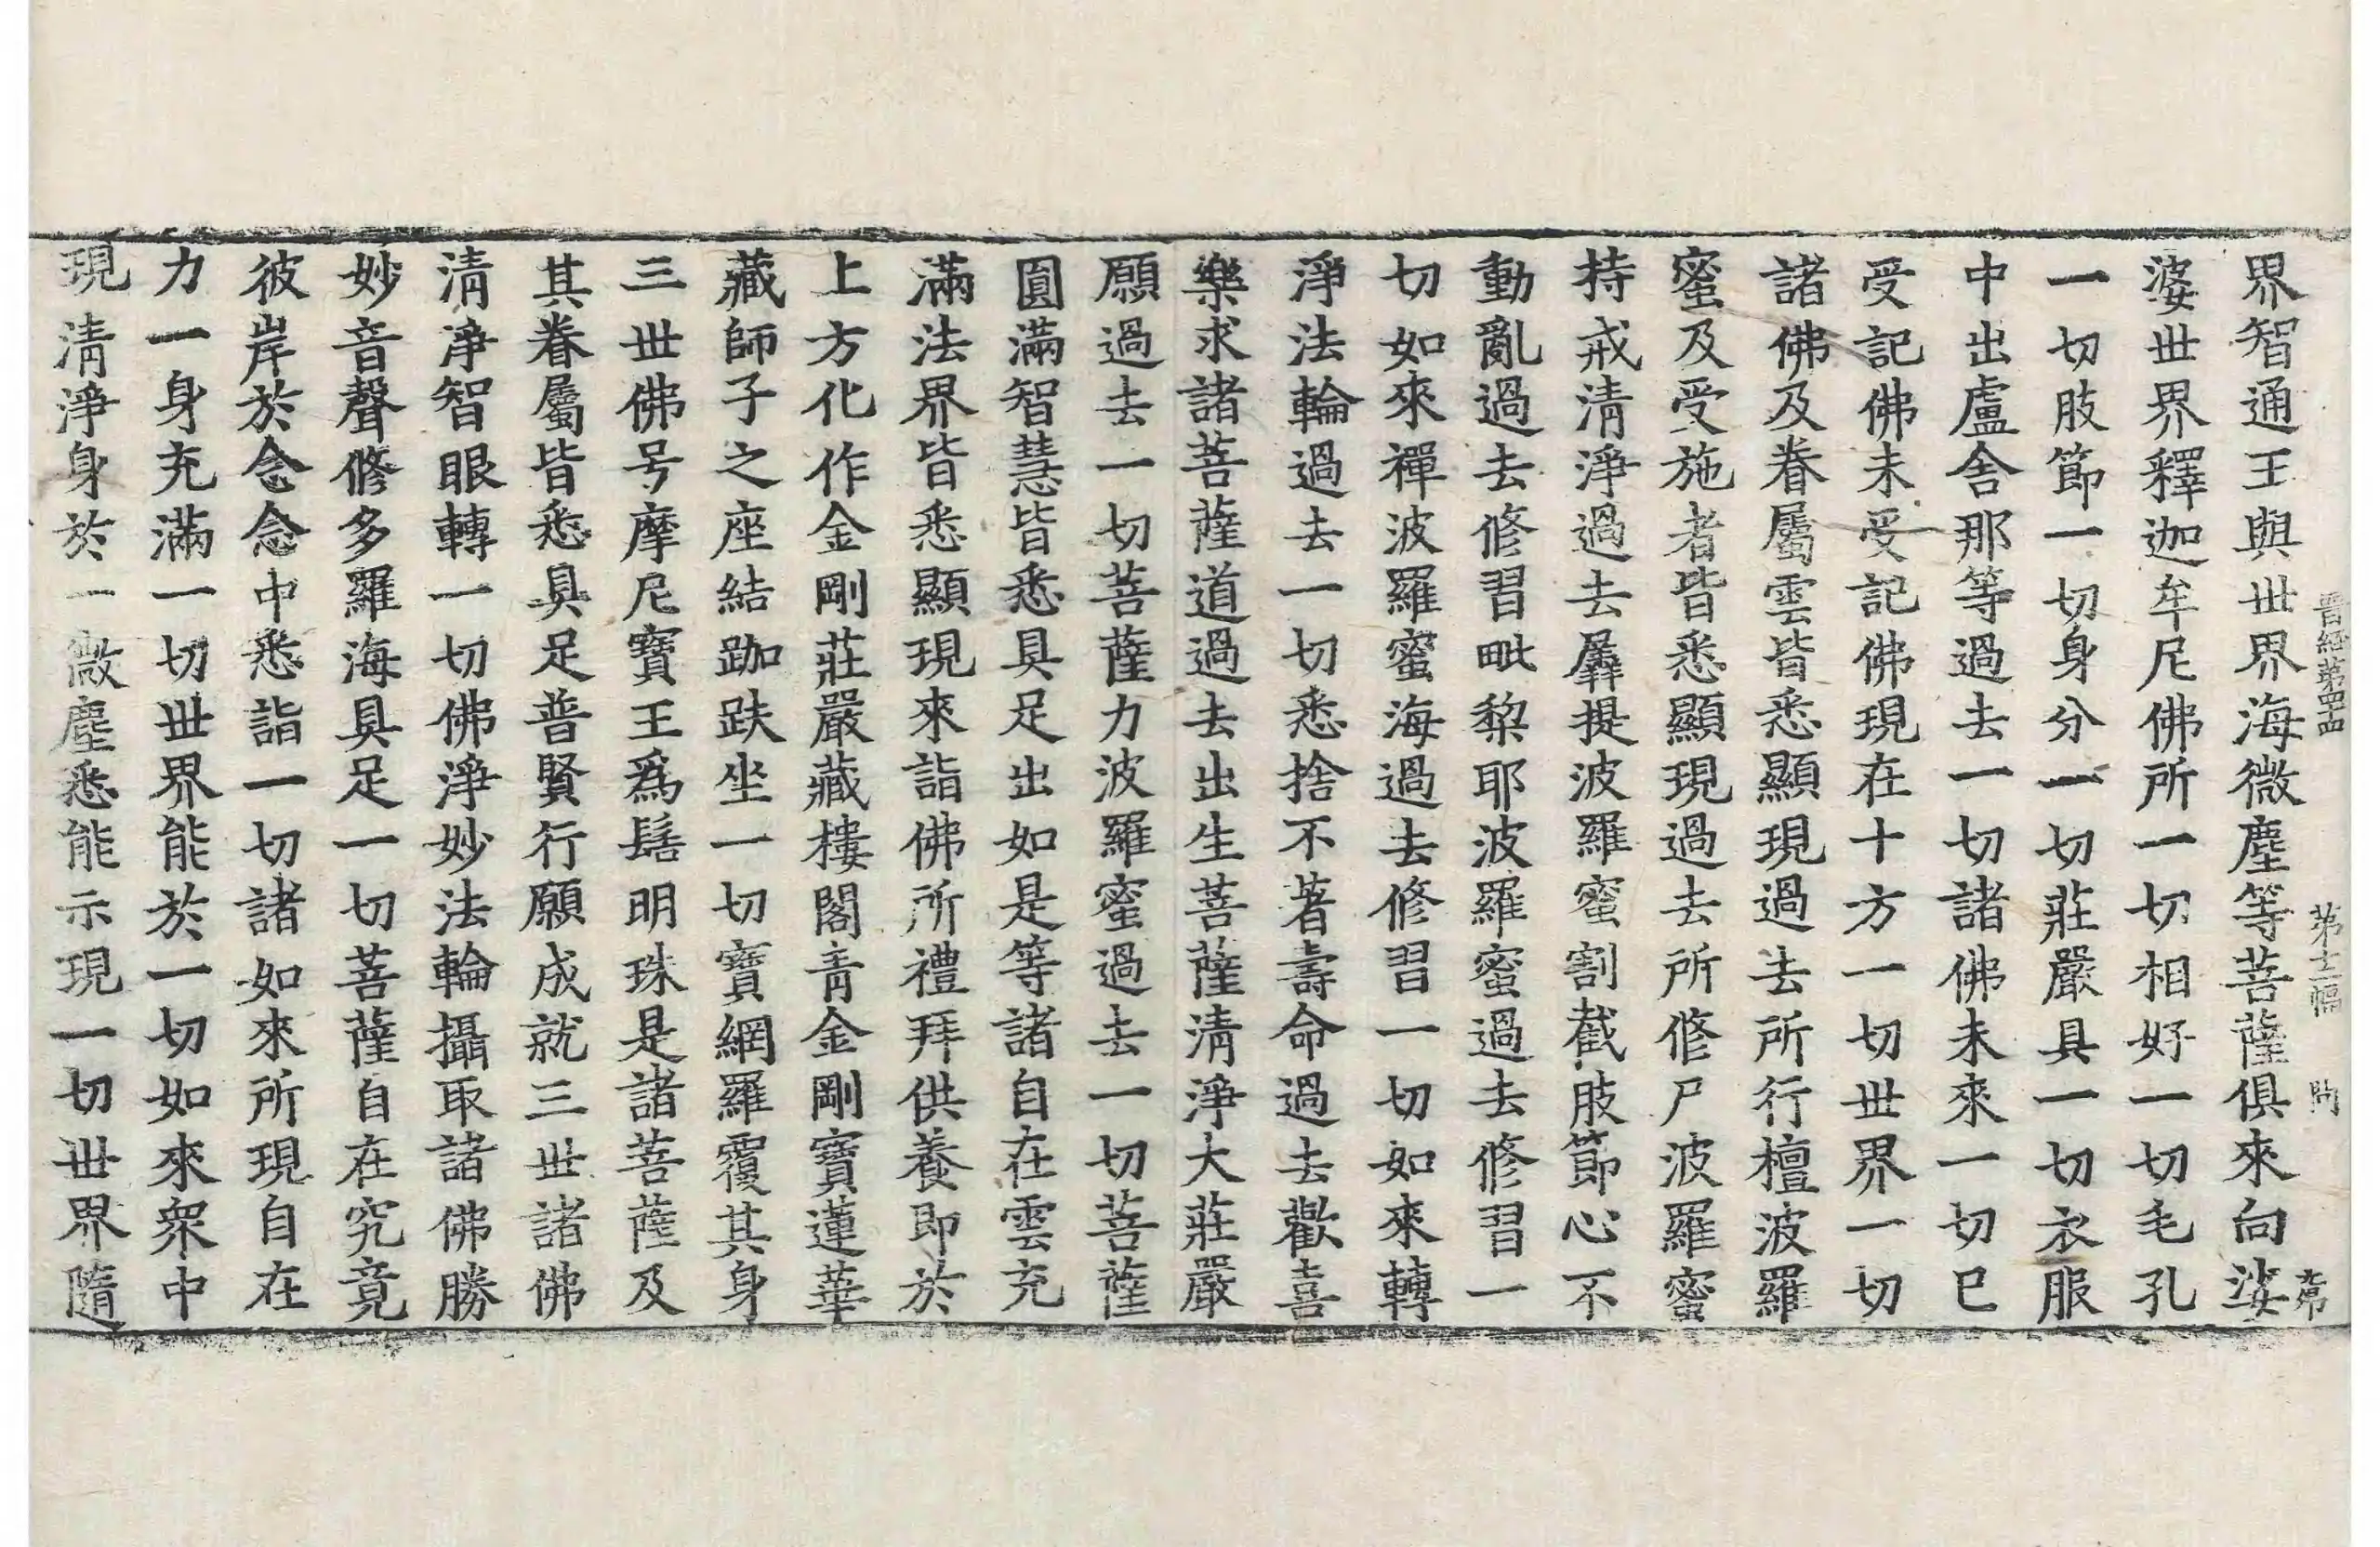 晉經第四四 第十二幅 問
界智通王與世界海微塵等菩薩俱來向娑
婆世界釋迦牟尼佛所一切相好一切毛孔
一切肢節一切身分一切莊嚴具一切衣服
中出盧舍那等過去一切諸佛未來一切已
受記佛未受記佛現在十方一切世界一切
諸佛及眷屬雲皆悉顯現過去所行檀波羅
蜜及受施者皆悉顯現過去所修尸波羅蜜
持戒清淨過去羼提波羅蜜割截肢節心不
動亂過去修習毗黎耶波羅蜜過去修習一
切如來禪波羅蜜海過去修習一切如來轉
淨法輪過去一切悉捨不著壽命過去歡喜
樂求諸菩薩道過去出生菩薩清淨大莊嚴
願過去一切菩薩力波羅蜜過去一切菩薩
圓滿智慧皆悉具足出如是等諸自在雲充
滿法界皆悉顯現來詣佛所禮拜供養即於
上方化作金剛莊嚴藏樓閣青金剛寶蓮華
藏師子之座結跏趺坐一切寶網羅覆其身
三世佛号摩尼寶王爲髻明珠是諸菩薩及
其眷屬皆悉具足普賢行願成就三世諸佛
清淨智眼轉一切佛淨妙法輪攝取諸佛勝
妙音聲修多羅海具足一切菩薩自在究竟
彼岸於念念中悉詣一切諸如來所現自在
力一身充滿一切世界能於一切如來衆中
現清淨身於一微塵悉能示現一切世界隨